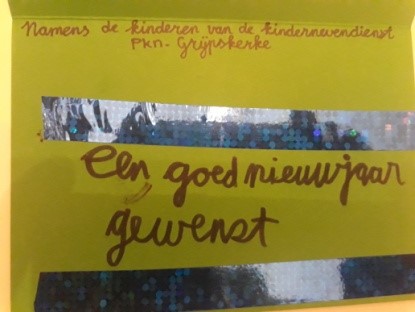 Namens de kinderen van de kindernevendienst
PKn- Grijpskerke
een goed nieuwjaar
gewenst